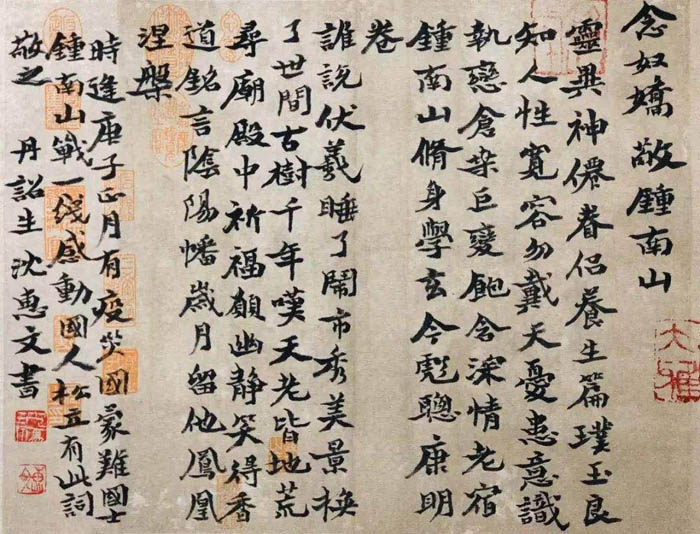 念奴嬌敬鍾南山
靈異神僊眷侶養生篇璞玉良
知人性寬容勿戴天憂患意識
執戀倉染巨變飽含深情老宿
鍾南山脩身學玄今彪聰康明
卷
誰說伏羲睡了鬧市秀美景換
了世間古樹千年嘆天老皆地荒
尋廟殿中祈福願幽静笑得香
道銘言陰陽幡歲月留他鳳凰
涅槃
時逢庚子正月有疫災國蒙難國士
鍾南山戰一线感動國人松立有此詞
敬之 丹詔生沈惠文書
大雅